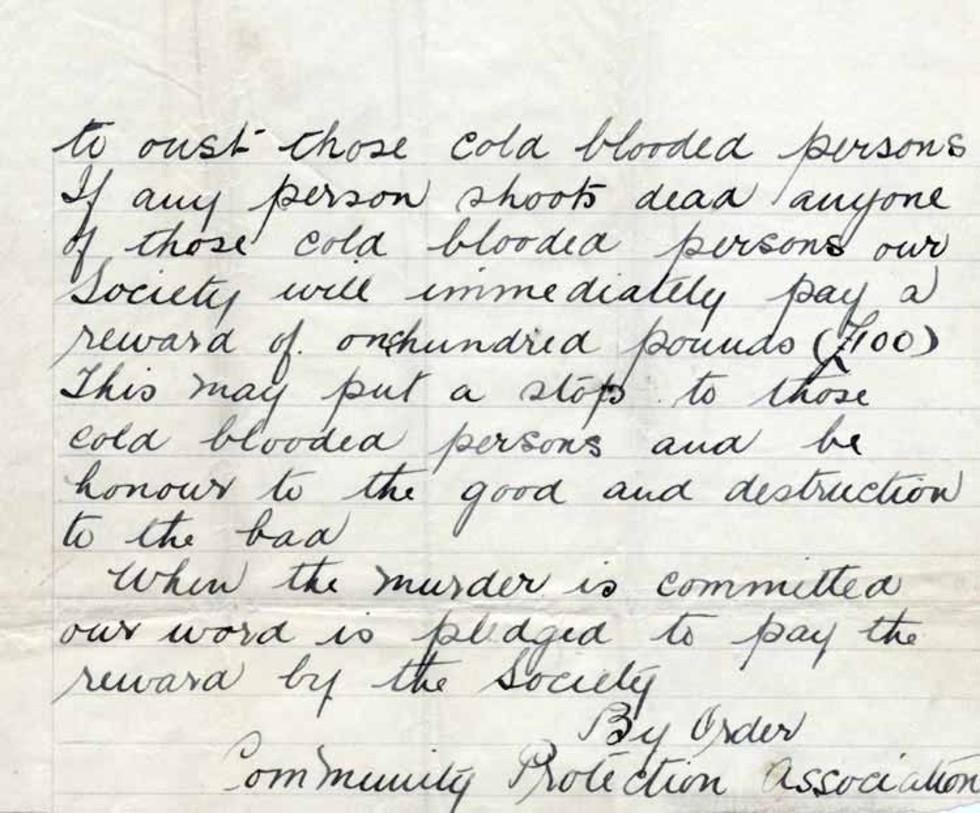 to oust those cold blooded persons
If any person shoots dead anyone
of those cold blooded persons our
Society will immediately pay a
reward of. onehundred pounds (£100)
This may put a stop to those
cold blooded persons and be
honour to the good and destruction
to the bad
When the murder is committed
our word is pledged to pay the
reward by the Society
By Order
Community Protection Association